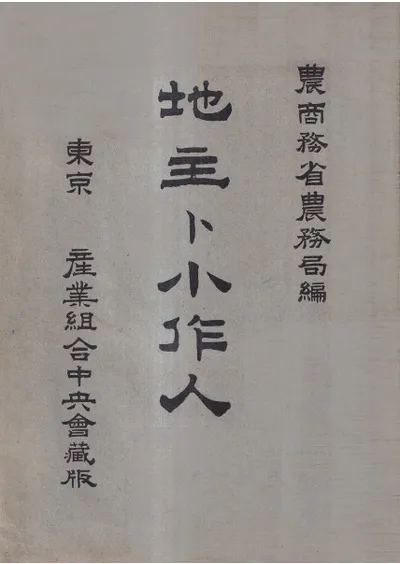 農商務省農務局編
地主ト小作人
東京 産業組合中央會藏版